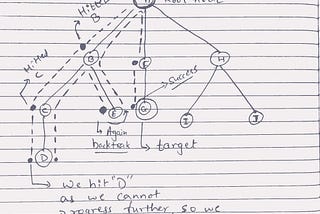 Hitted
B
Root node
Hitted
C
B
F
H
Success
C
E
G
I
J
Again
backtrack
target
D
We hit "D"
as we cannot
progress further, so we